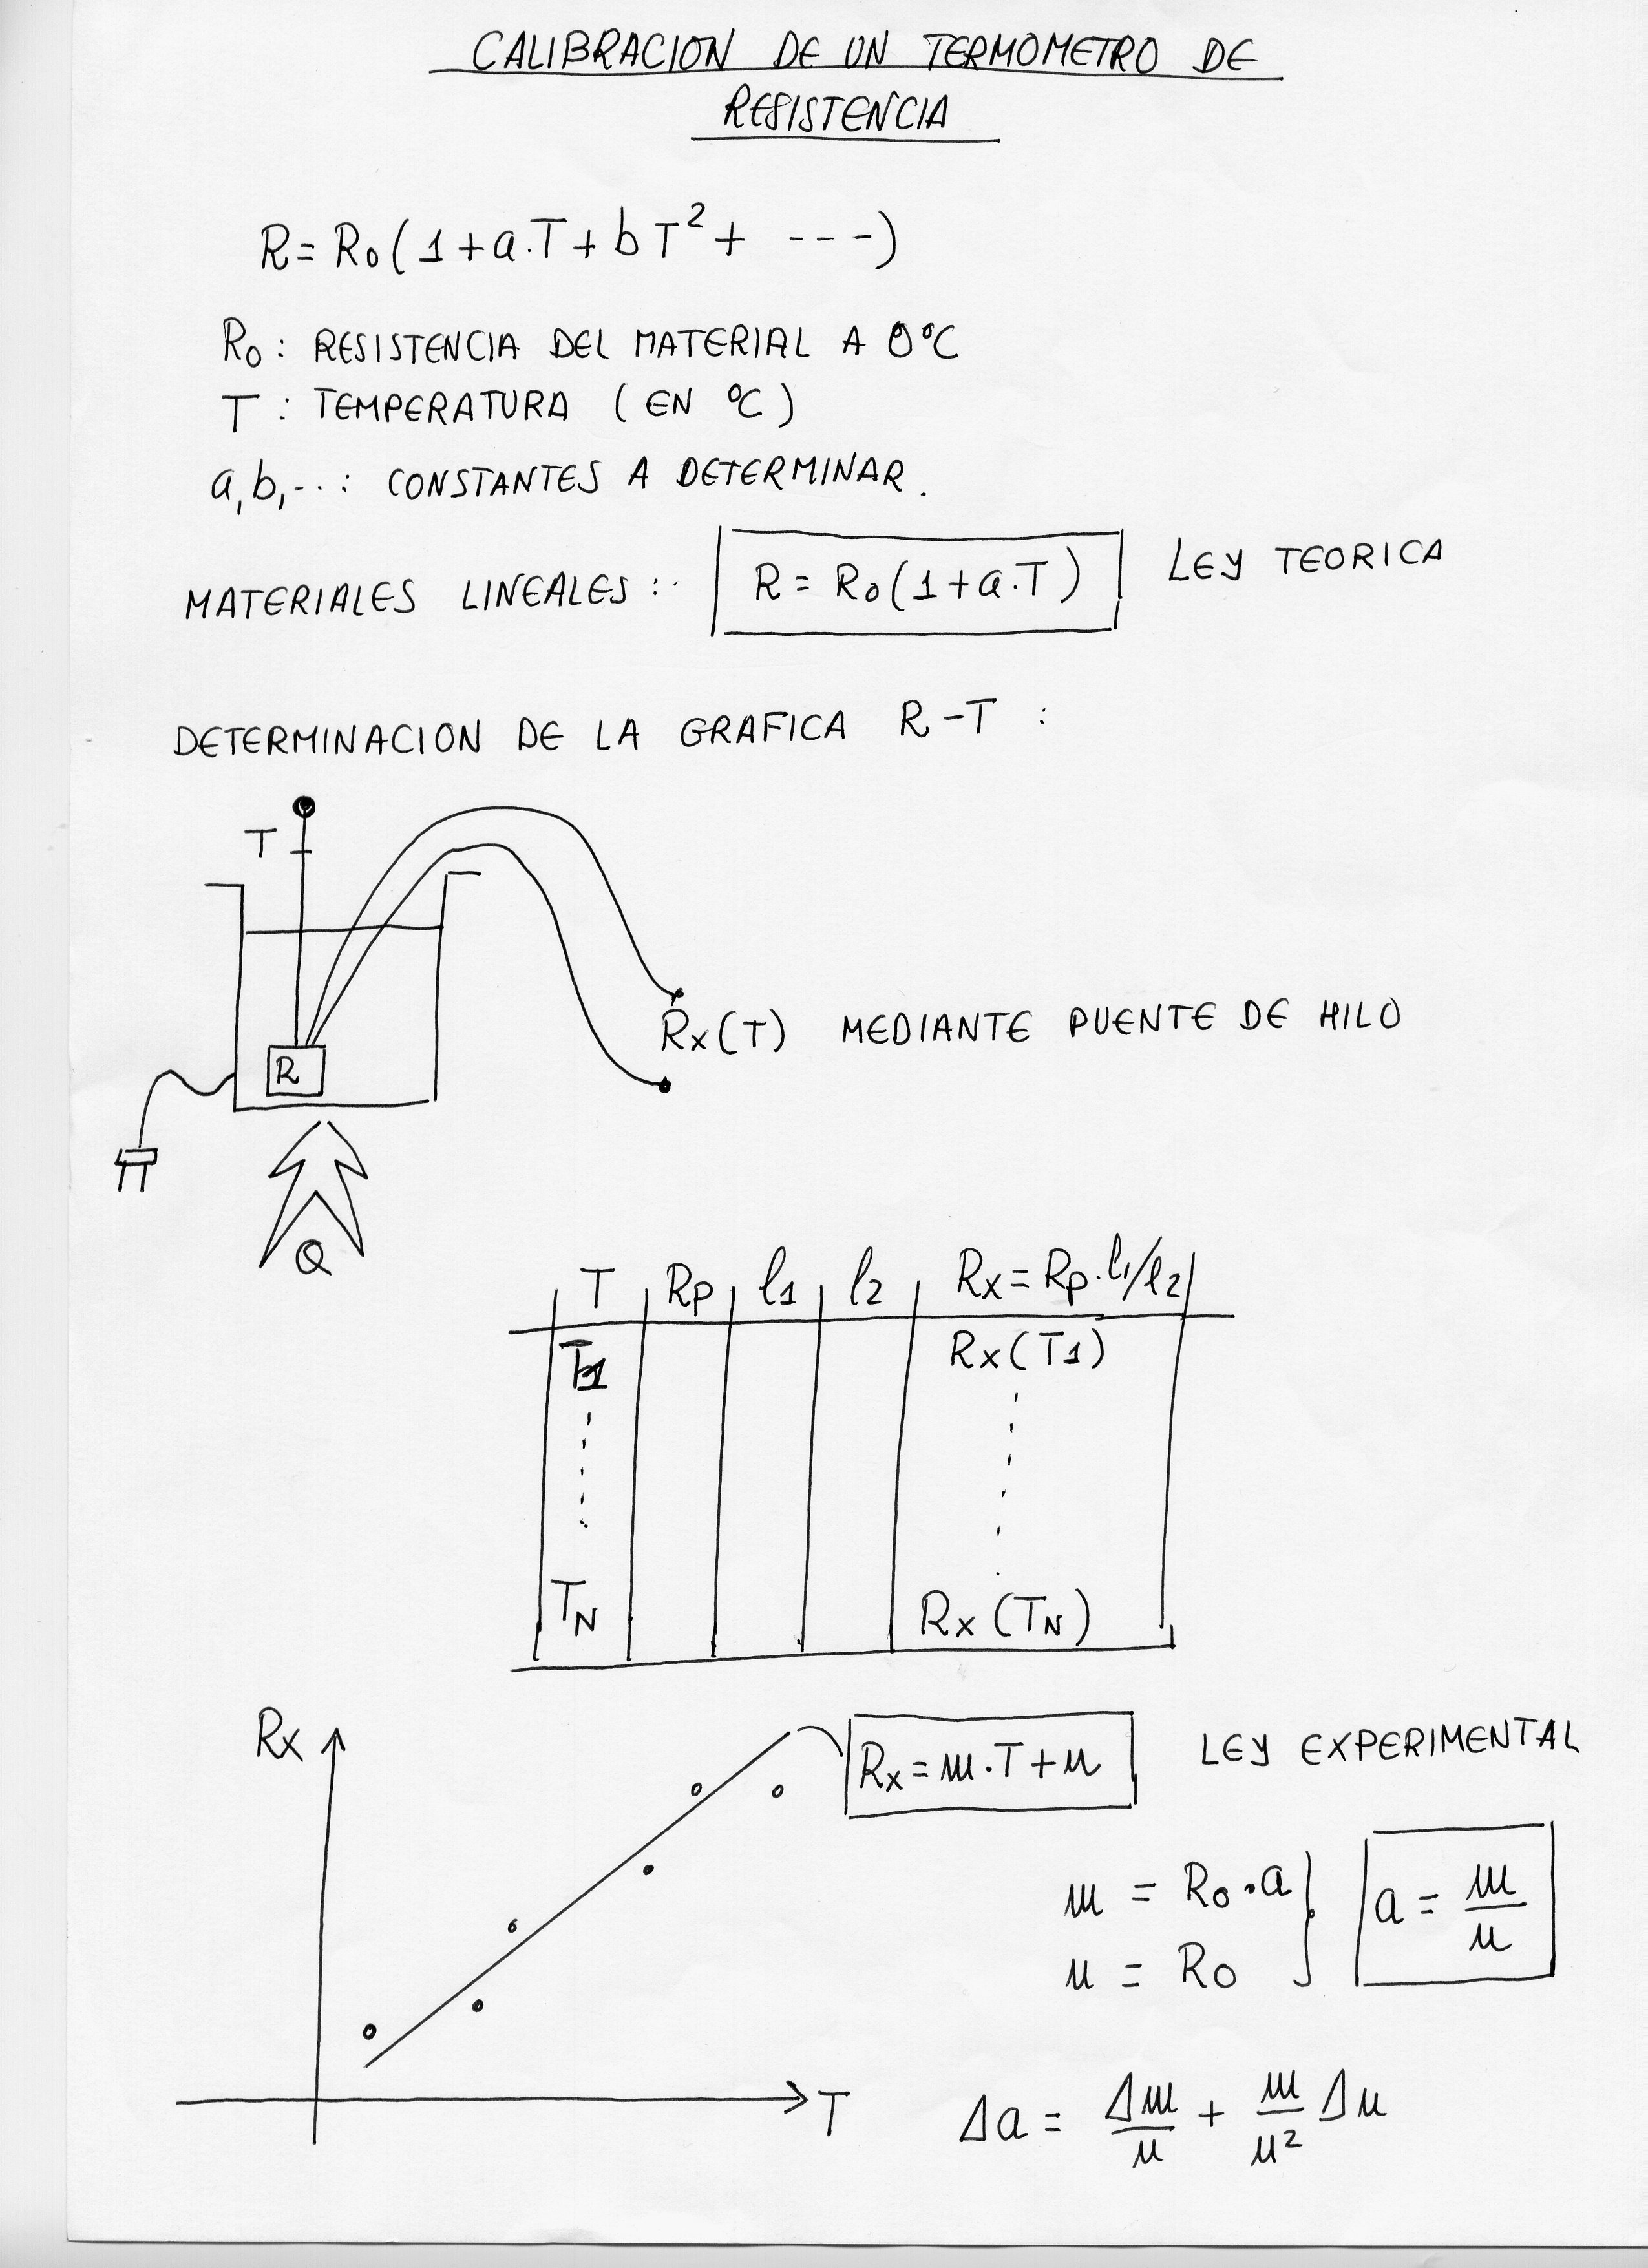 CALIBRACION DE UN TERMOMETRO DE
RESISTENCIA
R = Ro(1+a.T+bT²+ ---)
Ro: RESISTENCIA DEL MATERIAL A 0ºC
T : TEMPERATURA (EN ºC)
a,b,...: CONSTANTES A DETERMINAR.
MATERIALES LINEALES: R = Ro(1+a.T) LEY TEORICA
DETERMINACION DE LA GRAFICA R-T :
T
R
Rx(T) MEDIANTE PUENTE DE HILO
Q
T Rp l1 l2 Rx=Rp.l1/l2
T1 Rx(T1)
TN Rx(TN)
Rx
Rx=m.T+n LEY EXPERIMENTAL
m = Ro.a
n = Ro
a = m/n
T
Δa = Δm/n + m/n² Δn